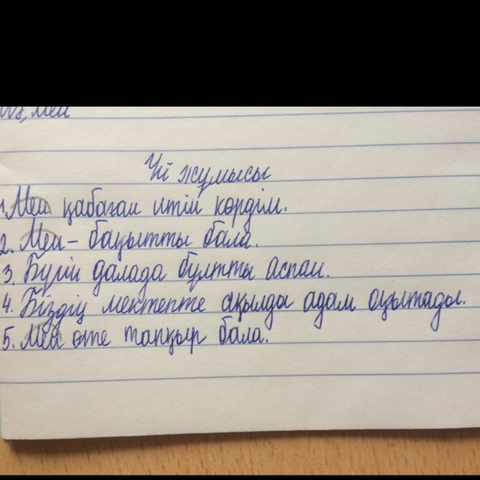 Үй жұмысы
1. Мен қабаған итін көрдім.
2. Мен - бақытты бала.
3. Бүгін далада бұлтты аспан.
4. Біздің мектепте ақылды адам оқытады.
5. Мен өте тапқыр бала.